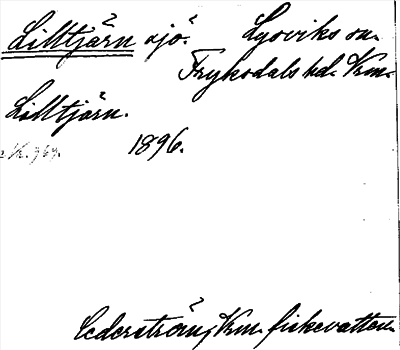 Lilltjärn sjö. Lysviks sn.
Fryksdals hd. Vrm.
Lilltjärn.
1896.
Cederström, Vrm. fiskevatten